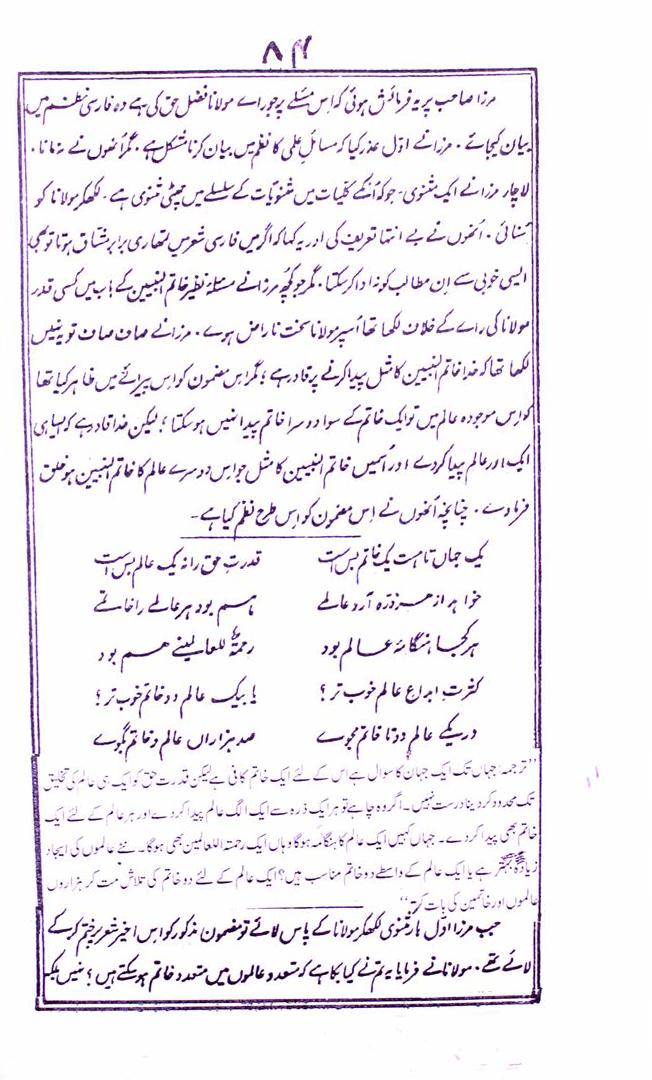 ۸۴
مرزا صاحب پر یہ فرمائش ہوئی کہ اس مسئلے پر جو راے مولانا فضل حق کی ہے وہ فارسی نظم میں
بیان کیجائے۔ مرزا نے اوّل عذر کیا کہ مسائلِ علمی کا نظم میں بیان کرنا مشکل ہے۔ مگر اُنھوں نے نہ مانا۔
لاچار مرزا نے ایک مثنوی۔ جو کہ اُنکے کلیات میں مثنویات کے سلسلے میں چھٹی مثنوی ہے۔ لکھکر مولانا کو
سُنائی۔ اُنھوں نے بے انتہا تعریف کی اور یہ کہا کہ اگر میں فارسی شعر میں تمھاری برابر مشاق ہوتا تو بھی
ایسی خوبی سے اِن مطالب کو نہ ادا کر سکتا۔ مگر جو کچھ مرزا نے مسئلہ نظیر خاتم النبیین کے باب میں کسی قدر
مولانا کی راے کے خلاف لکھا تھا اُسپر مولانا سخت ناراض ہوے۔ مرزا نے صاف صاف تو یہ نہیں
لکھا تھا کہ خدا خاتم النبیین کا مثل پیدا کرنے پر قادر ہے؛ مگر اس مضمون کو اس پیرائے میں ظاہر کیا تھا
کہ اس موجودہ عالم میں تو ایک خاتم کے سوا دوسرا خاتم پیدا نہیں ہو سکتا؛ لیکن خدا قادر ہے کہ ایسا ہی
ایک اور عالم پیدا کر دے اور اُسمیں خاتم النبیین کا مثل جو اس دوسرے عالم کا خاتم النبیین ہو خلق
فرما دے۔ چنانچہ اُنھوں نے اِس مضمون کو اس طرح نظم کیا ہے۔
یک جہاں تا ہست یک خاتم بس است قدرتِ حق را نہ یک عالم بس است
خواہد از ہر ذرّہ آرد عالمے ہم بود ہر عالمے را خاتمے
ہر کجا ہنگامۂ عالم بود رحمۃٌ للعالمینے ہم بود
کثرتِ ابداعِ عالم خوب تر؟ یا بیک عالم دو خاتم خوب تر؟
در یکے عالم دو تا خاتم مجوے صد ہزاراں عالم و خاتم بگوے
"ترجمہ: جہاں تک ایک جہان کا سوال ہے اس کے لئے ایک خاتم کافی ہے لیکن قدرت حق کو ایک ہی عالم کی تخلیق
تک محدود کر دینا درست نہیں۔ اگر وہ چاہے تو ہر ایک ذرہ سے ایک الگ عالم پیدا کر دے اور ہر عالم کے لئے ایک
خاتم بھی پیدا کر دے۔ جہاں کہیں ایک عالم کا ہنگامہ ہوگا وہاں ایک رحمتہ اللعالمین بھی ہوگا۔ نئے عالموں کی ایجاد
زیادہ بہتر ہے یا ایک عالم کے واسطے دو خاتم مناسب ہیں؟ ایک عالم کے لئے دو خاتم کی تلاش مت کر ہزاروں
عالموں اور خاتمین کی بات کر"
جب مرزا اوّل بار مثنوی لکھکر مولانا کے پاس لائے تو مضمون مذکور کو اس اخیر شعر پر ختم کر کے
لائے تھے۔ مولانا نے فرمایا یہ تم نے کیا بکا ہے کہ متعدد عالموں میں متعدد خاتم ہو سکتے ہیں؟ نہیں بلکہ